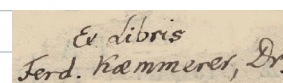 Ex Libris
Ferd. Kæmmerer, Dr.